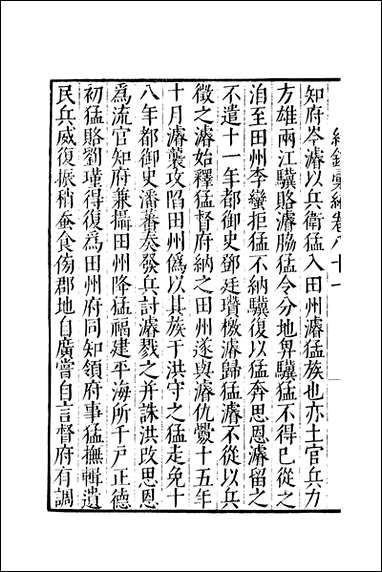 紀錄彙編卷八十一
知府岑濬以兵衛猛入田州濬猛族也亦土官兵力
方雄兩江驥賂濬脇猛令分地畀驥猛不得已從之
洎至田州李蠻拒猛不納驥復以猛奔思恩濬留之
不遣十一年都御史鄧廷瓚檄濬歸猛濬不從以兵
徵之濬始釋猛督府納之田州遂與濬仇釁十五年
十月濬襲攻陷田州僞以其族于洪守之猛走免十
八年都御史潘蕃奏發兵討濬戮之并誅洪改思恩
爲流官知府兼攝田州降猛福建平海所千戸正德
初猛賂劉瑾得復爲田州府同知領府事猛撫輯遺
民兵威復振稍蚕食傍郡地自廣嘗自言督府有調